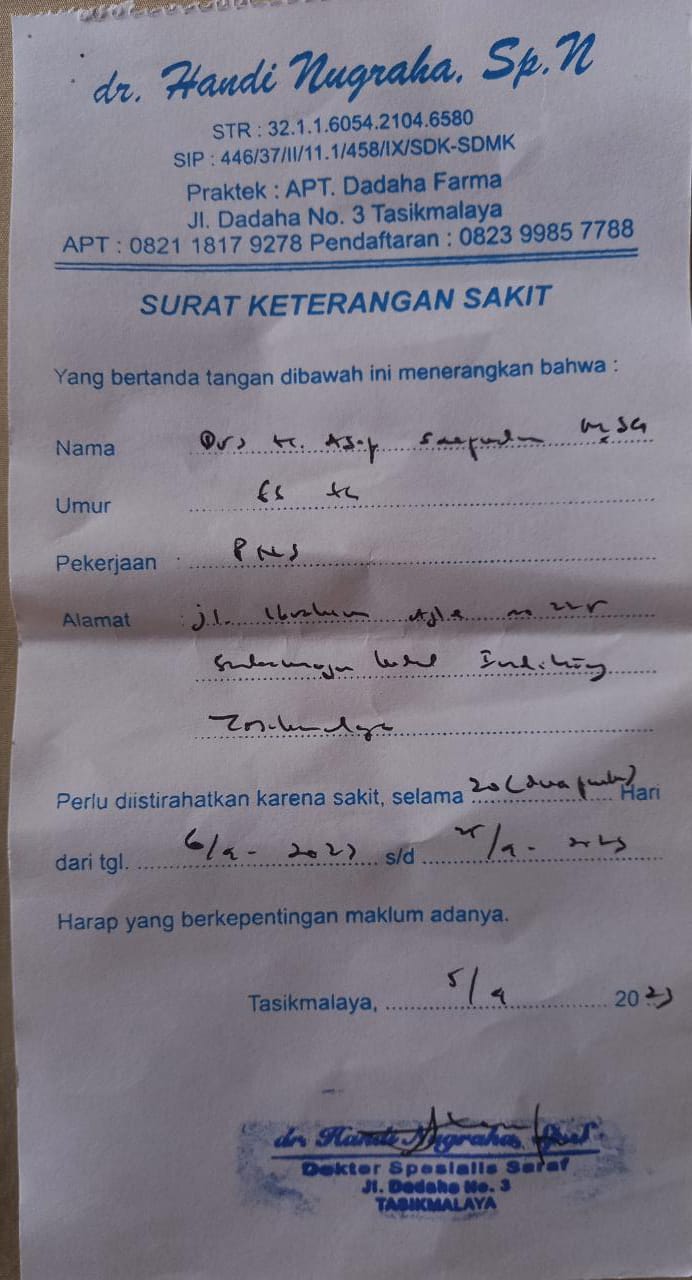 dr. Handi Nugraha, Sp.N
STR : 32.1.1.6054.2104.6580
SIP : 446/37/II/11.1/458/IX/SDK-SDMK
Praktek : APT. Dadaha Farma
Jl. Dadaha No. 3 Tasikmalaya
APT : 0821 1817 9278 Pendaftaran : 0823 9985 7788
SURAT KETERANGAN SAKIT
Yang bertanda tangan dibawah ini menerangkan bahwa :
Nama Drs H. Asep Saepudin M.SG
Umur th
Pekerjaan : PNS
Alamat : jl. Ibrahim Adjie no
Indihiang
Tasikmalaya
Perlu diistirahatkan karena sakit, selama 20 (dua puluh) Hari
dari tgl. 6/9 - 2023 s/d 25/9 - 2023
Harap yang berkepentingan maklum adanya.
Tasikmalaya, 5/9 2023
dr. Handi Nugraha, Sp.S
Dokter Spesialis Saraf
Jl. Dadaha No. 3
TASIKMALAYA